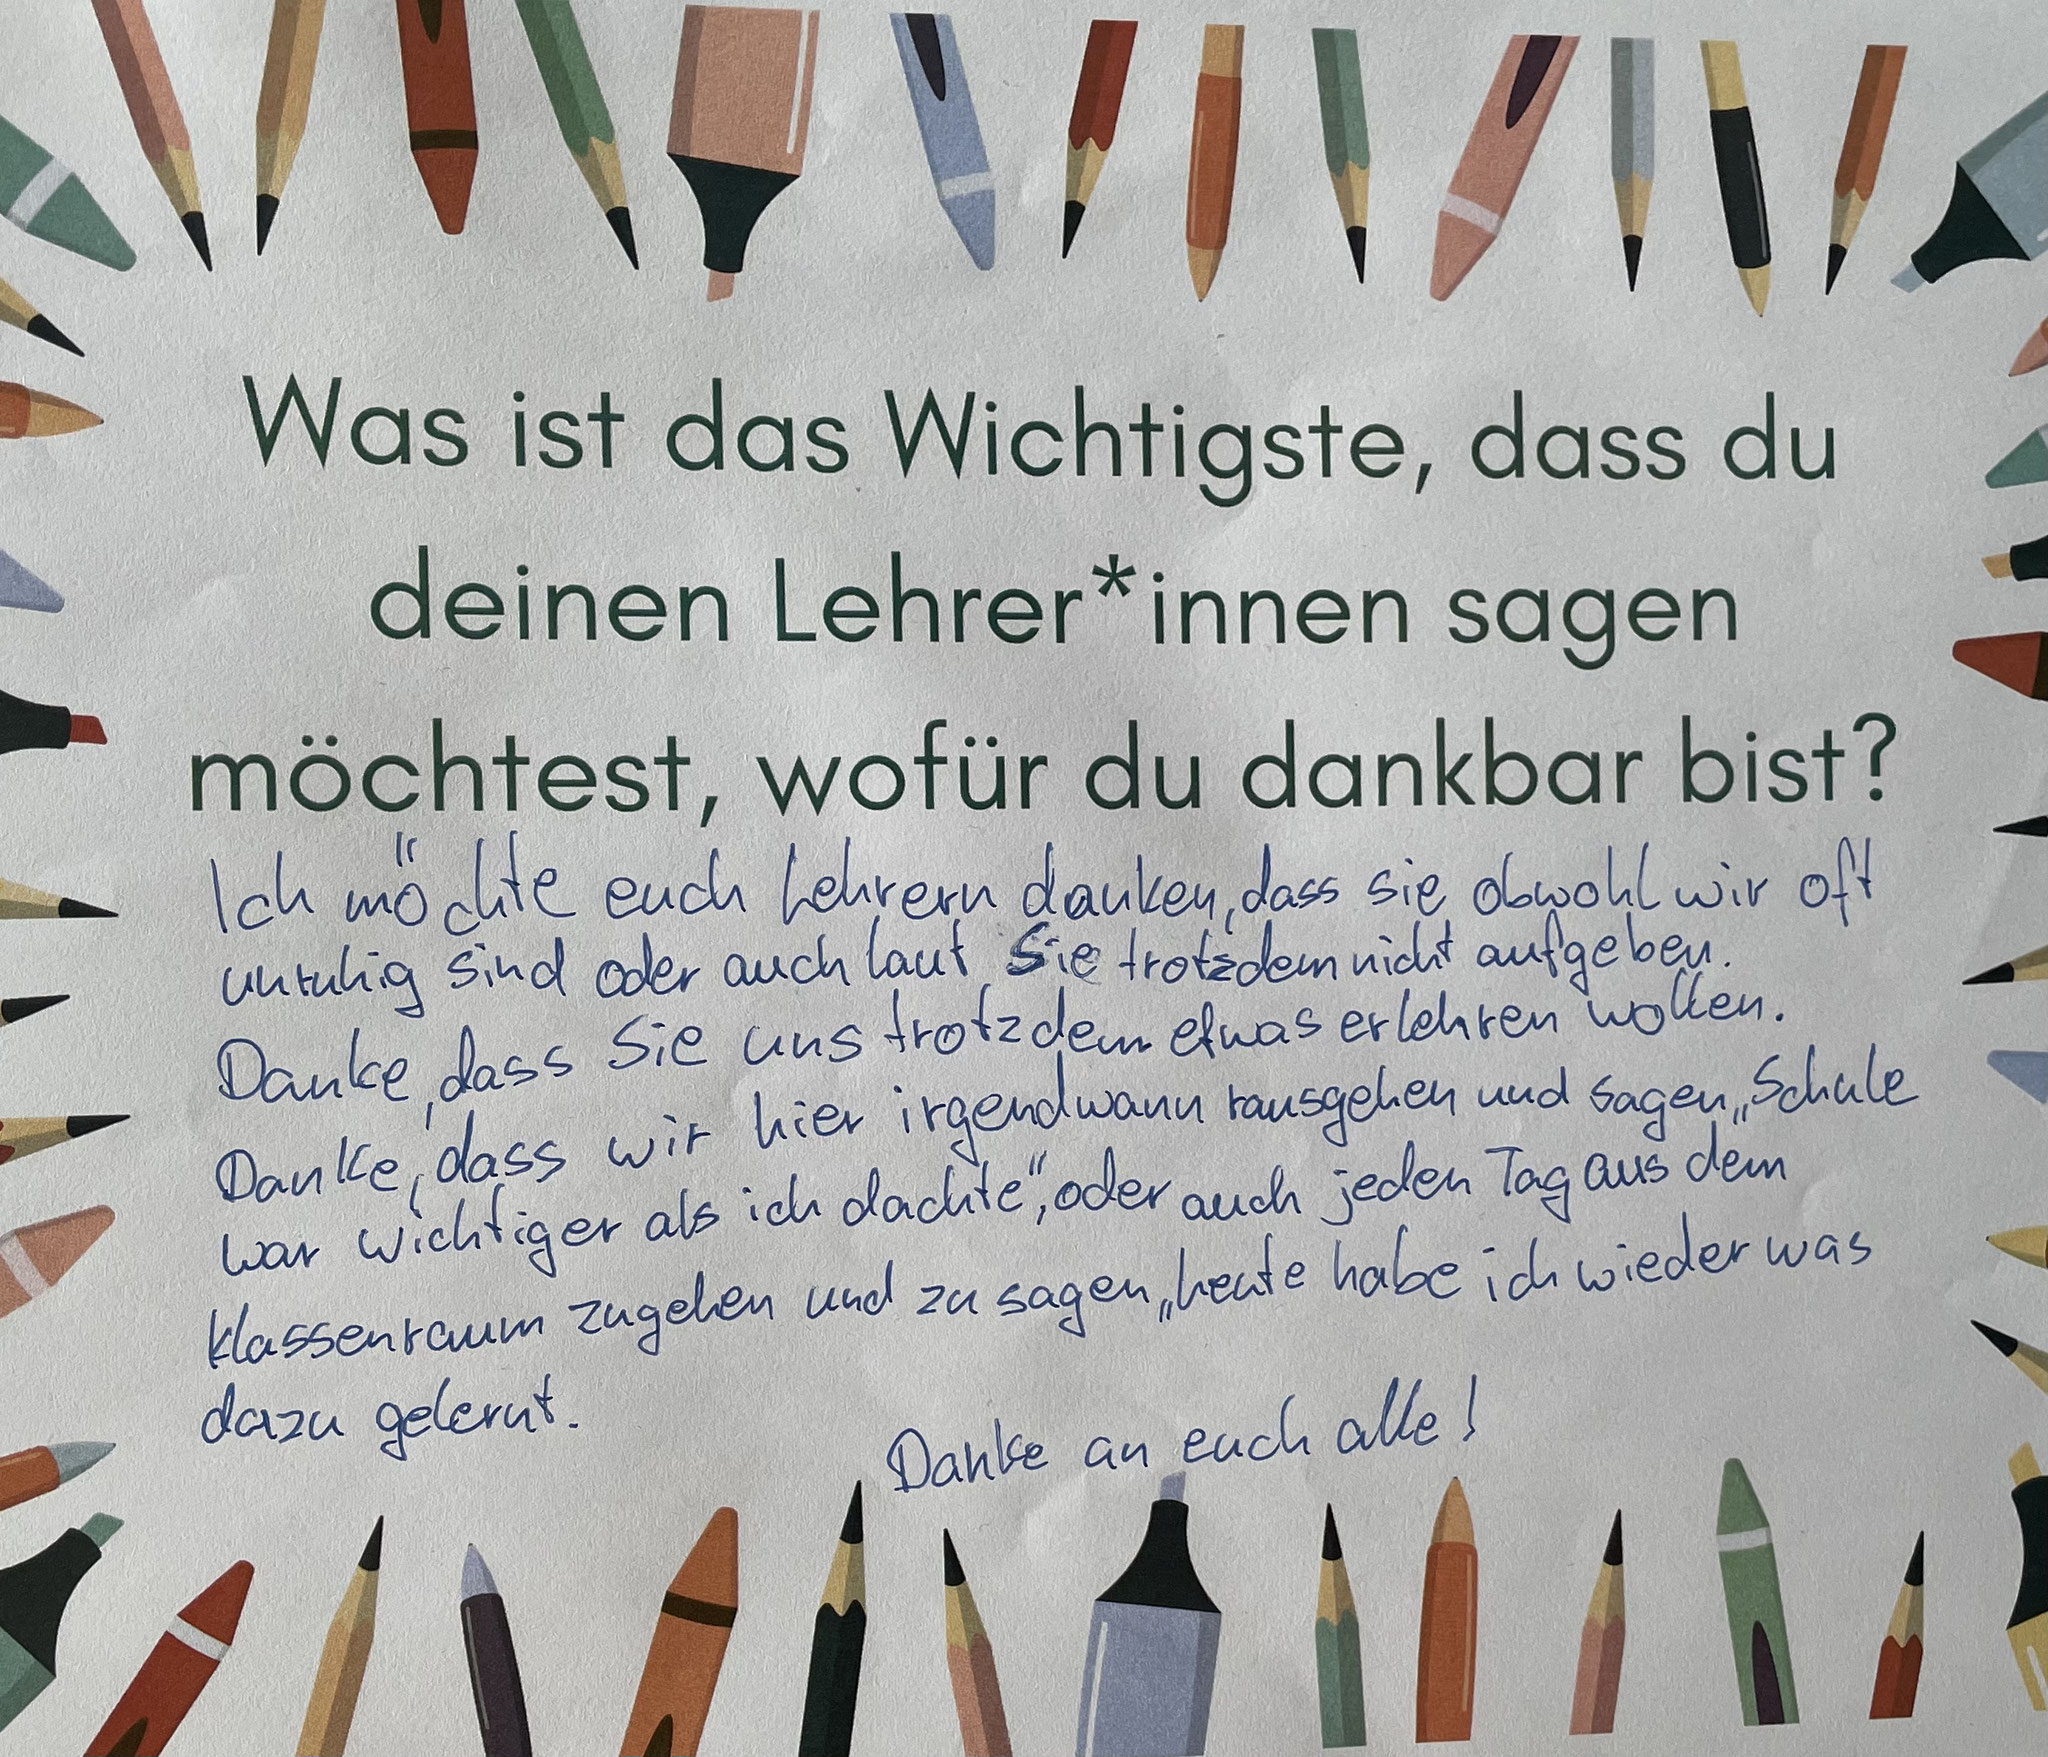 Was ist das Wichtigste, dass du
deinen Lehrer*innen sagen
möchtest, wofür du dankbar bist?
Ich möchte euch Lehrern danken, dass sie obwohl wir oft
unruhig sind oder auch laut Sie trotzdem nicht aufgeben.
Danke, dass Sie uns trotzdem etwas erlehren wollen.
Danke, dass wir hier irgendwann rausgehen und sagen „Schule
war wichtiger als ich dachte", oder auch jeden Tag aus dem
Klassenraum zugehen und zu sagen „heute habe ich wieder was
dazu gelernt.
Danke an euch alle!